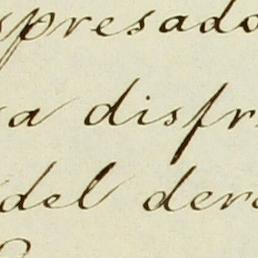 spresado
a disfr
del der